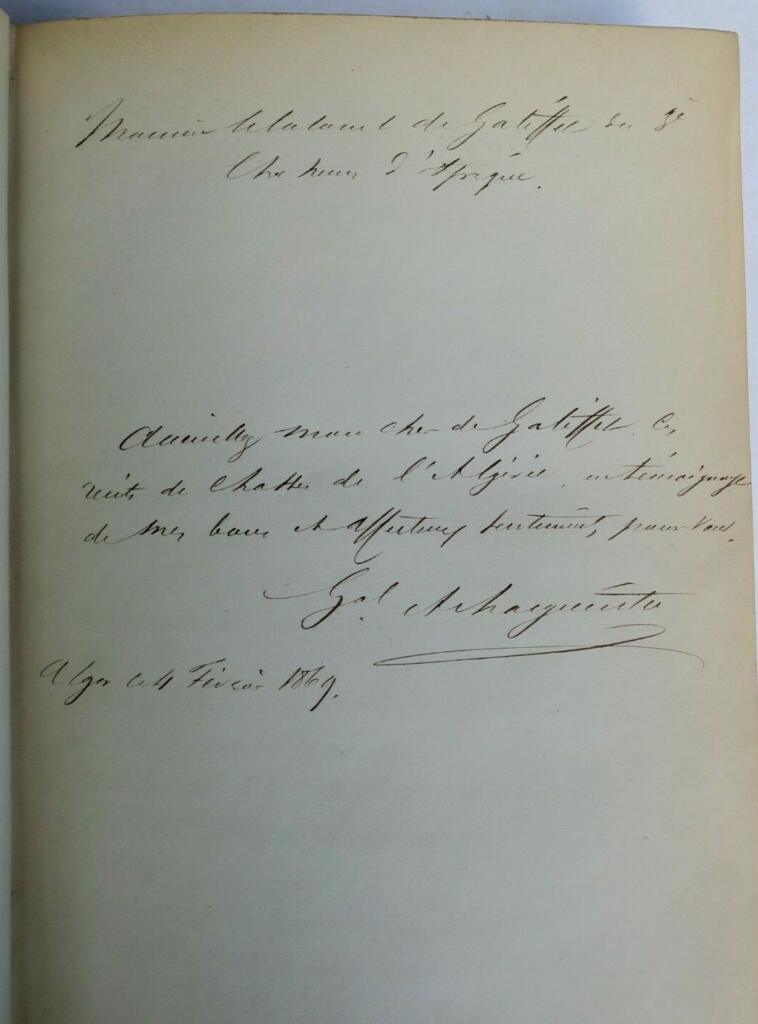 Monsieur le Colonel de Galiffet du 3e
Chasseurs d'Afrique.
Accueillez mon cher de Galiffet ces
récits de Chasses de l'Algérie, en témoignage
de mes bons et affectueux sentiments pour vous.
Gal A Margueritte
Alger le 4 Février 1869.